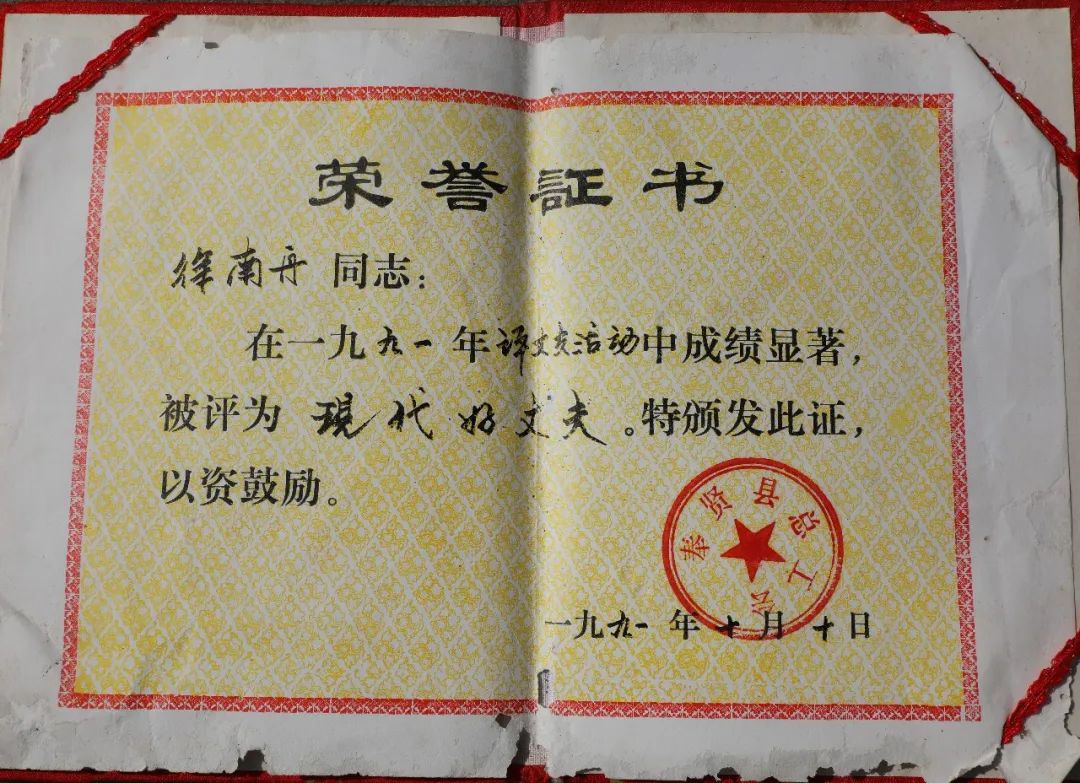 荣誉証书
徐南舟同志：
在一九九一年评丈夫活动中成绩显著，
被评为 現代好丈夫。特颁发此证，
以资鼓励。
奉贤县总工会
一九九一年十月十日